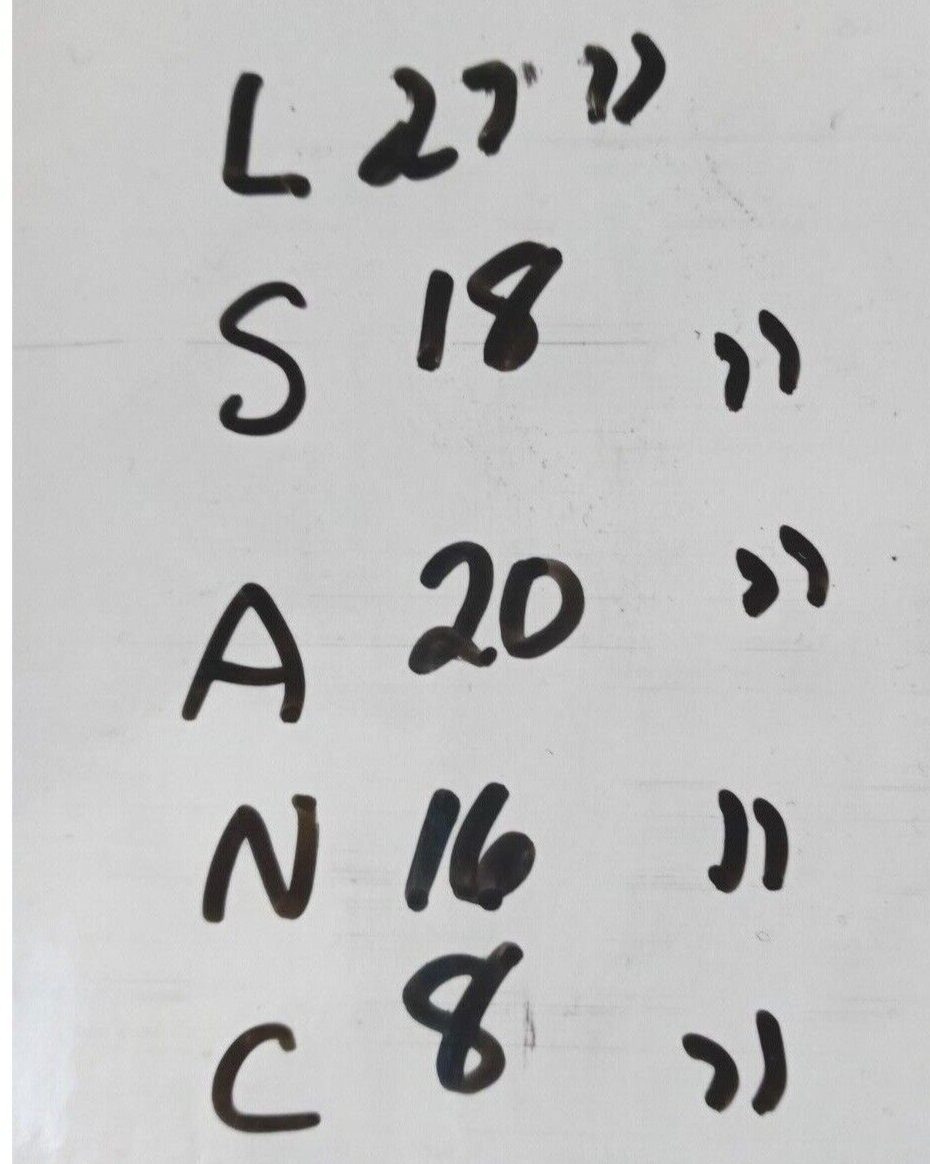 L 27 "
S 18 "
A 20 "
N 16 "
C 8 "